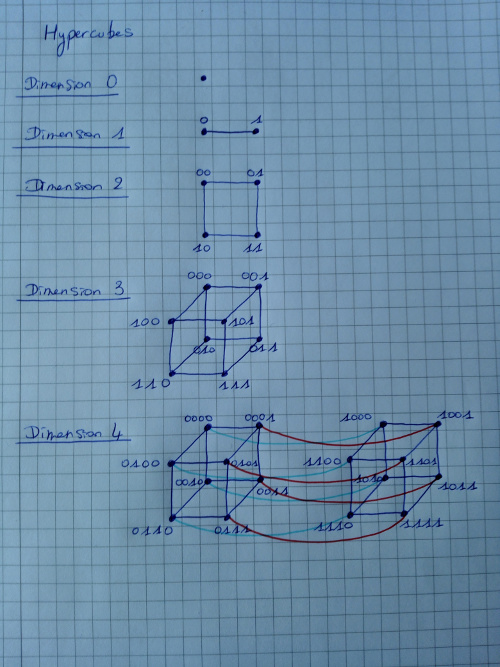 Hypercubes
Dimension 0
Dimension 1
0 1
Dimension 2
00 01
10 11
Dimension 3
000 001
100 101
010 011
110 111
Dimension 4
0000 0001 1000 1001
0100 0101 1100 1101
0010 0011 1010 1011
0110 0111 1110 1111